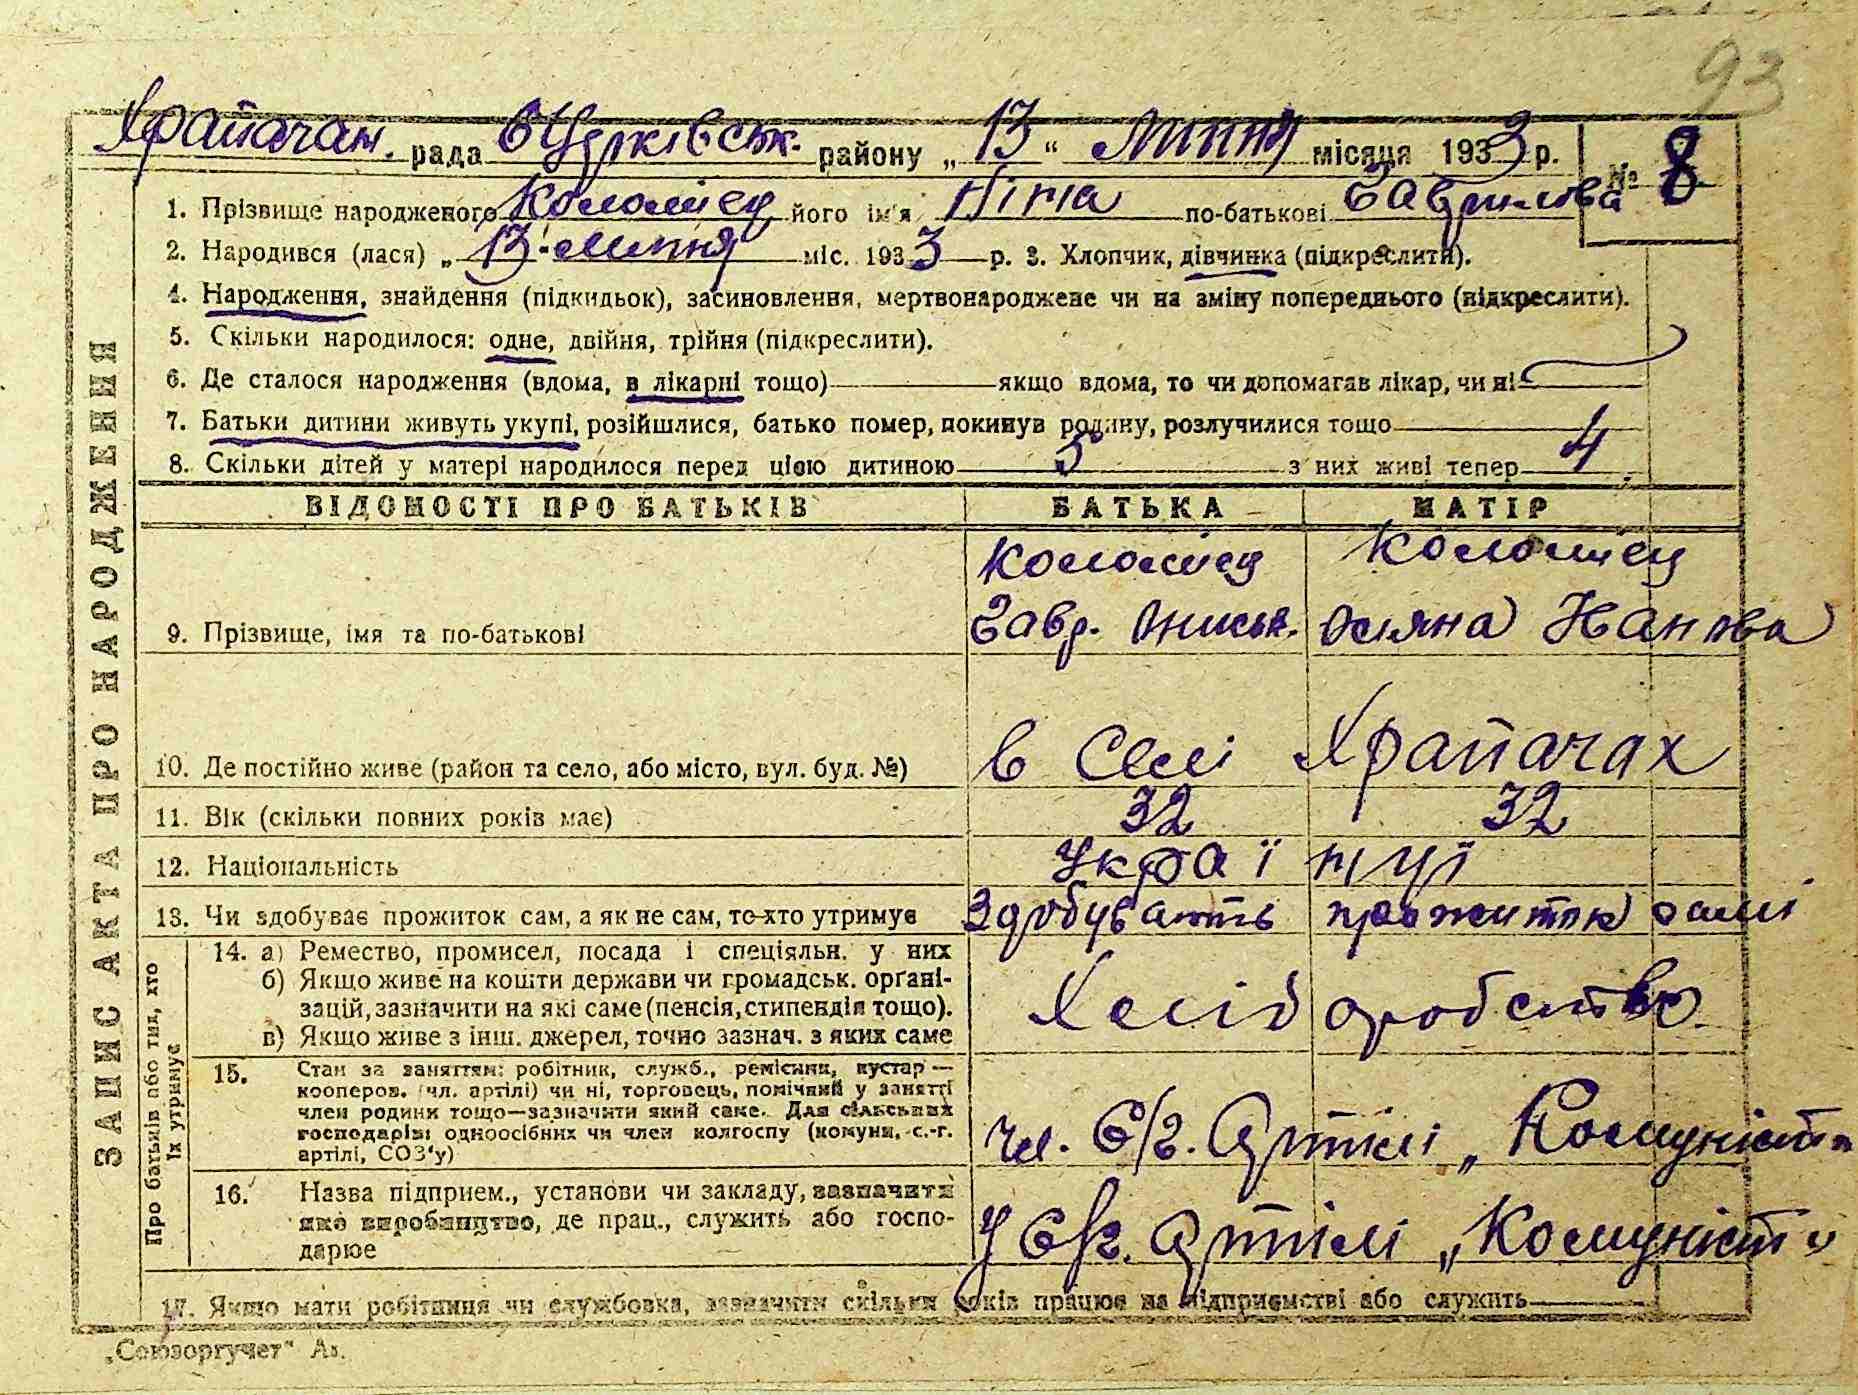 93
Храпачан. рада БЦерківськ. району „13“ Липня місяця 1933 р.
№ 8
1. Прізвище народженого Коломієц його ім'я Ніна по-батькові Гаврилова
2. Народився (лася) „13“ Липня міс. 1933 р. 3. Хлопчик, дівчинка (підкреслити).
4. Народження, знайдення (підкидьок), засиновлення, мертвонароджене чи на зміну попереднього (підкреслити).
5. Скільки народилося: одне, двійня, трійня (підкреслити).
6. Де сталося народження (вдома, в лікарні тощо) якщо вдома, то чи допомагав лікар, чи ні
7. Батьки дитини живуть укупі, розійшлися, батько помер, покинув родину, розлучилися тощо
8. Скільки дітей у матері народилося перед цією дитиною 5 з них живі тепер 4
ЗАПИС АКТА ПРО НАРОДЖЕННЯ
ВІДОМОСТІ ПРО БАТЬКІВ БАТЬКА МАТІР
Коломієц Коломієц
9. Прізвище, імя та по-батькові Гавр. Оникій. Оляна Іванова
10. Де постійно живе (район та село, або місто, вул. буд. №) в Селі Храпачах
11. Вік (скільки повних років має) 32 32
12. Національність Украї нці
13. Чи здобуває прожиток сам, а як не сам, то хто утримує Здобувають прожиток самі
Про батьків або тих, хто їх утримує
14. а) Ремество, промисел, посада і спеціяльн. у них
б) Якщо живе на кошти держави чи громадськ. організацій, зазначити на які саме (пенсія, стипендія тощо).
в) Якщо живе з інш. джерел, точно зазнач. з яких саме
Хліборобство.
15. Стан за заняттям: робітник, служб., ремісник, кустар —
кооперов. (чл. артілі) чи ні, торговець, помічний у занятті
член родини тощо—зазначити який саме. Для сільських
господарів: одноосібних чи член колгоспу (комуни, с.-г.
артілі, СОЗ'у)
чл. С/г. Артілі „Комуніст“
16. Назва підприєм., установи чи закладу, зазначити
яке виробництво, де прац., служить або госпо-
дарює
у С/г. Артілі „Комуніст“
17. Якщо мати робітниця чи службовка, зазначити скільки років працює на підприємстві або служить
„Союзоргучет“